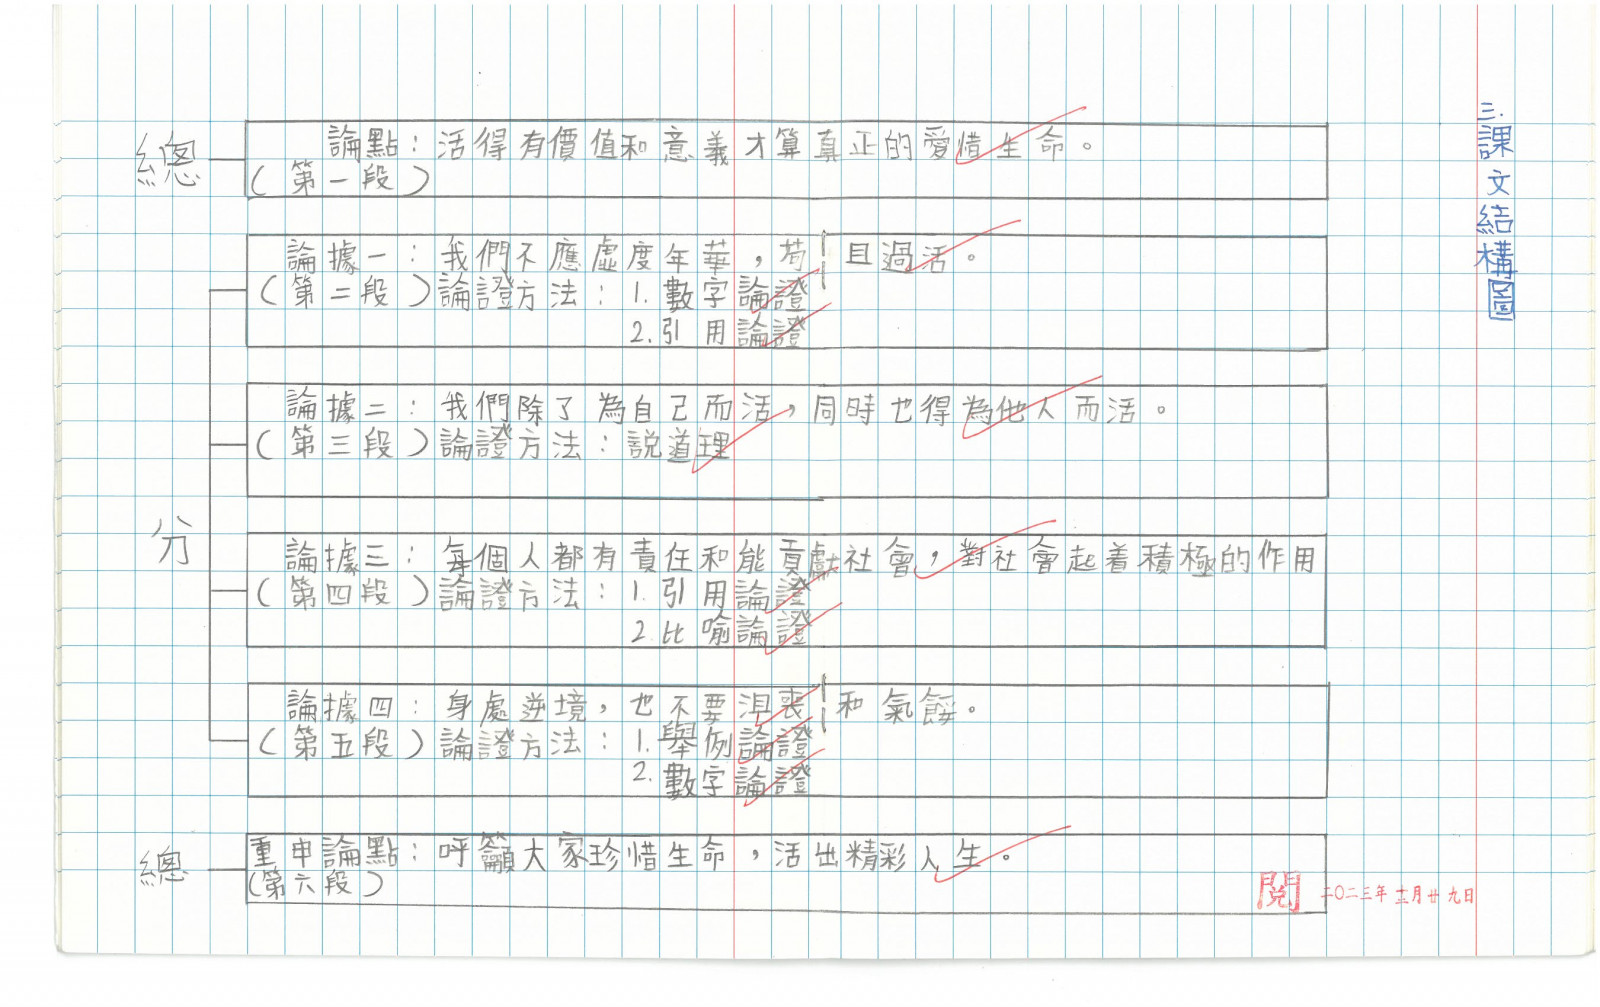 三.課文結構圖
總
論點：活得有價值和意義才算真正的愛惜生命。
（第一段）
論據一：我們不應虛度年華，苟且過活。
（第二段）論證方法：1.數字論證
2.引用論證
論據二：我們除了為自己而活，同時也得為他人而活。
（第三段）論證方法：說道理
分
論據三：每個人都有責任和能貢獻社會，對社會起着積極的作用
（第四段）論證方法：1.引用論證
2.比喻論證
論據四：身處逆境，也不要沮喪和氣餒。
（第五段）論證方法：1.舉例論證
2.數字論證
總
重申論點：呼籲大家珍惜生命，活出精彩人生。
（第六段）
閱 二〇二三年十二月廿九日